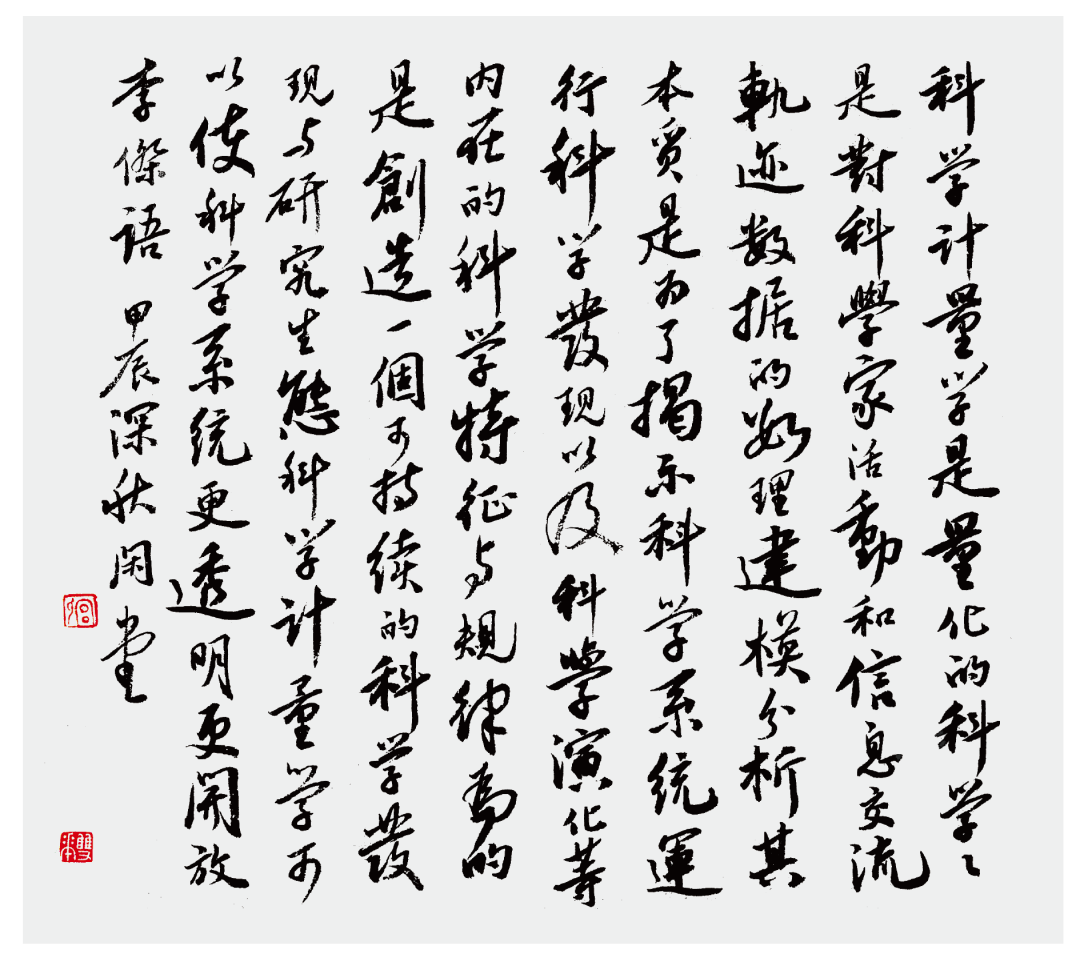 科学计量学是量化的科学学
是對科學家活動和信息交流
軌迹数据的数理建模分析其
本质是为了揭示科学系统運
行科学發现以及科學演化等
内在的科学特征与规律為的
是創造一個可持续的科学發
现与研究生態科学计量学可
以使科学系统更透明更開放
李傑語 甲辰深秋閑堂